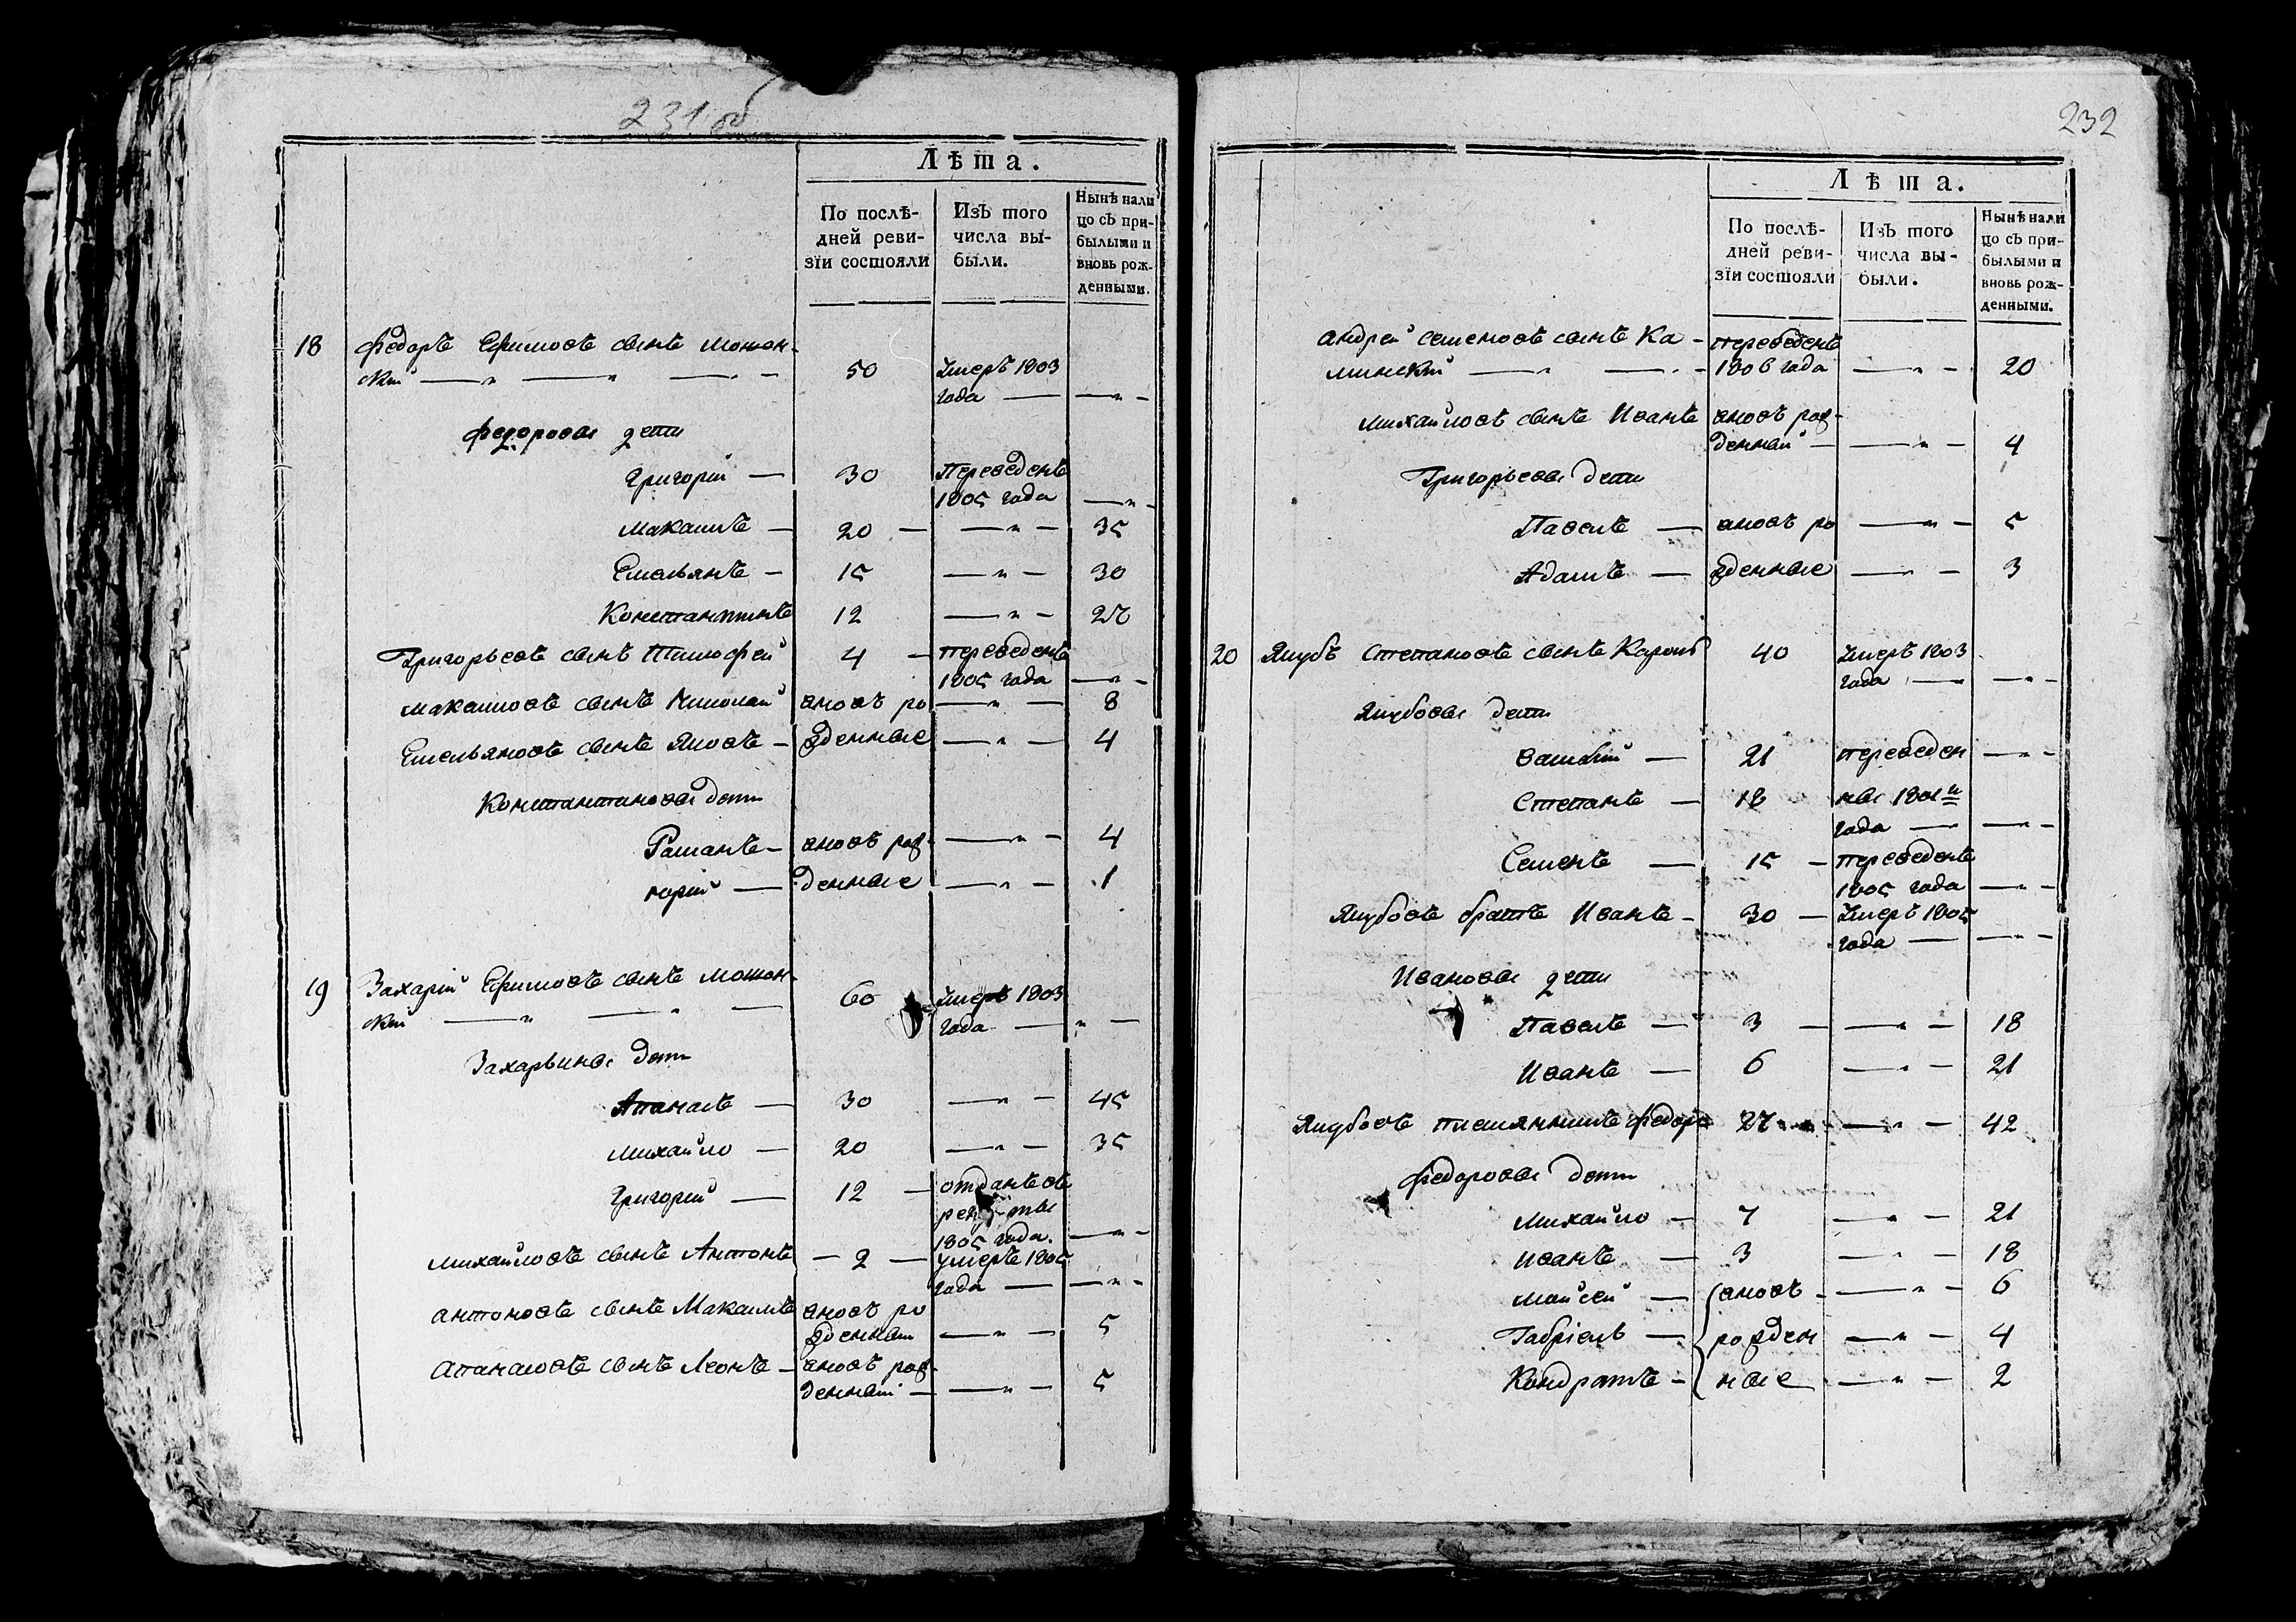 231 об
Лѣта.
По послѣ-
дней реви-
зїи состояли
Изъ того
числа вы-
были.
Нынѣ нали
цо съ при-
былыми и
вновь рож-
денными.
18 Федоръ Ефимовъ сынъ Мошон-
скій 50 Умеръ 1803
года
Федоровы дети
Григорій 30 Переведенъ
1805 года
Максимъ 20 35
Емельянъ 15 30
Константинъ 12 27
Григорьевъ сынъ Тимофей 4 переведенъ
1805 года
Максимовъ сынъ Николай вновъ ро 8
Емельяновъ сынъ Яковъ жденные 4
Константиновы дети
Раманъ вновъ рож 4
Юрій денные 1
19 Захарій Ефимовъ сынъ Мошон-
скій 60 Умеръ 1803
года
Захарьины дети
Апанасъ 30 45
Михайло 20 35
Григорей 12 отданъ въ
рекруты
1805 года.
Михайловъ сынъ Антонъ 2 умеръ 1805
года
Антоновъ сынъ Максимъ вновъ ро
жденный 5
Апанасовъ сынъ Леонъ вновъ рож-
денный 5
232
Лѣта.
По послѣ-
дней реви-
зїи состояли
Изъ того
числа вы-
были.
Нынѣ нали
цо съ при-
былыми и
вновь рож-
денными.
Андрей Семеновъ сынъ Ка- переведенъ
минскій 1806 года 20
Михайловъ сынъ Иванъ вновъ рож-
денный 4
Григорьевы дети
Павелъ вновъ ро 5
Адамъ жденные 3
20 Якубъ Степановъ сынъ 40 Умеръ 1803
года
Якубовы дети
Василій 21 переведен
Степанъ 18 ны 1801го
года
Семенъ 15 переведенъ
1805 года
Якубовъ братъ Иванъ 30 Умеръ 1805
года
Ивановы дети
Павелъ 3 18
Иванъ 6 21
Якубовъ племянникъ Федоръ 27 42
Федоровы дети
Михайло 7 21
Иванъ 3 18
Мойсей вновъ 6
Габріель рожден 4
Кондратъ ные 2